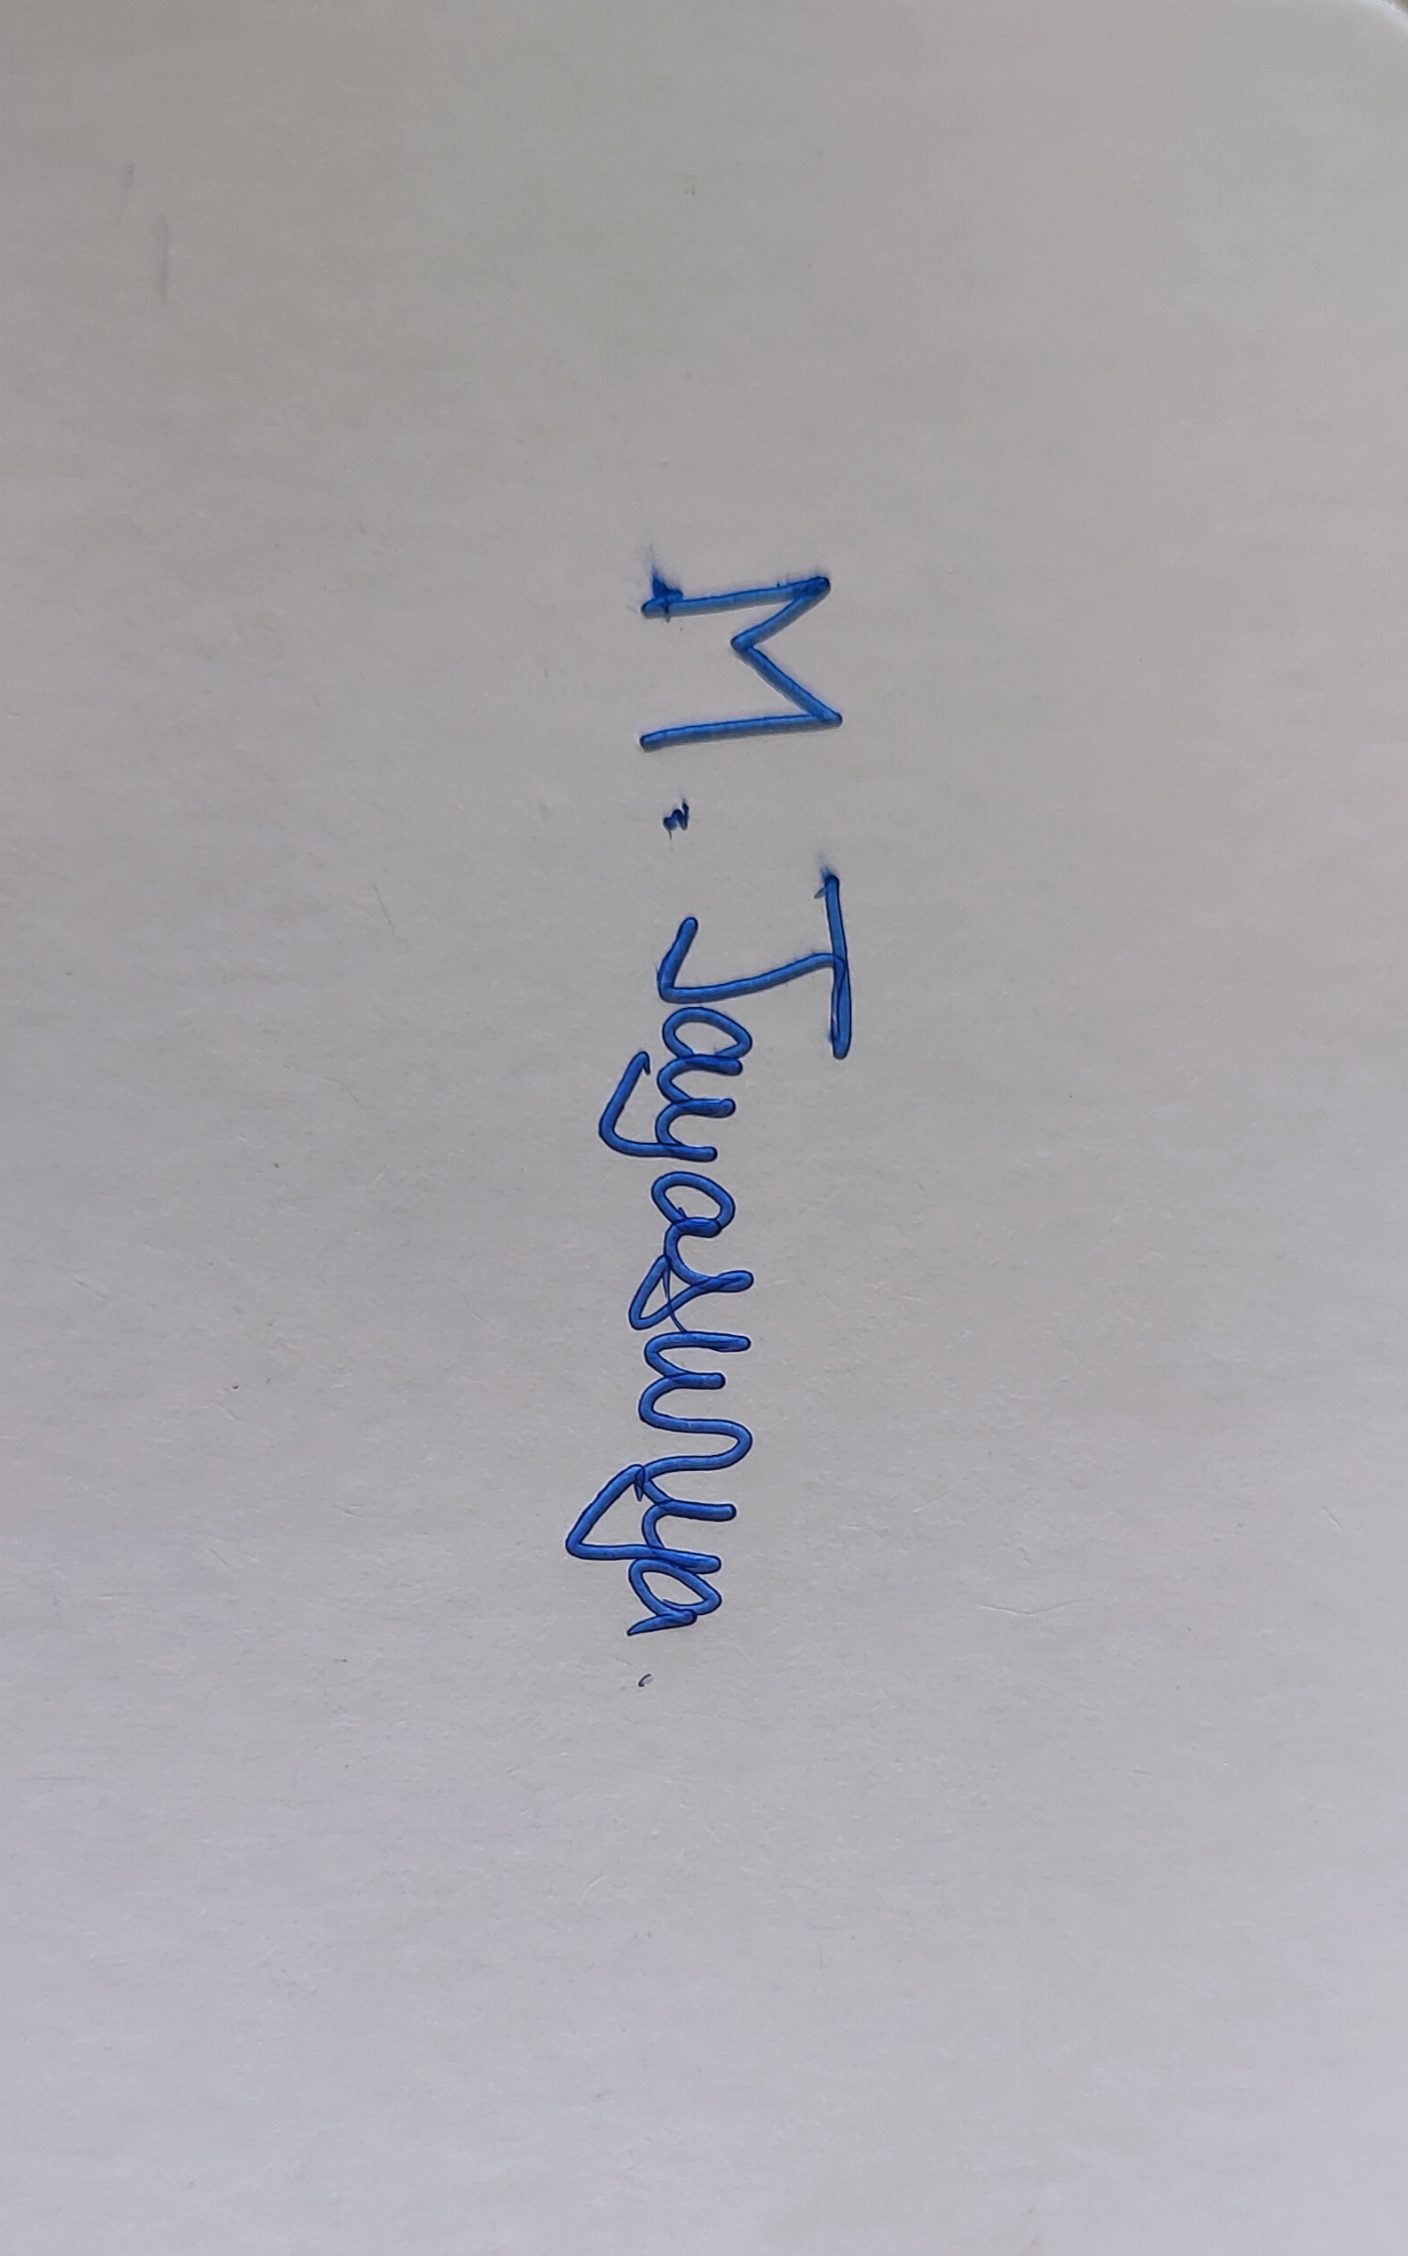 M. Jayasurya.